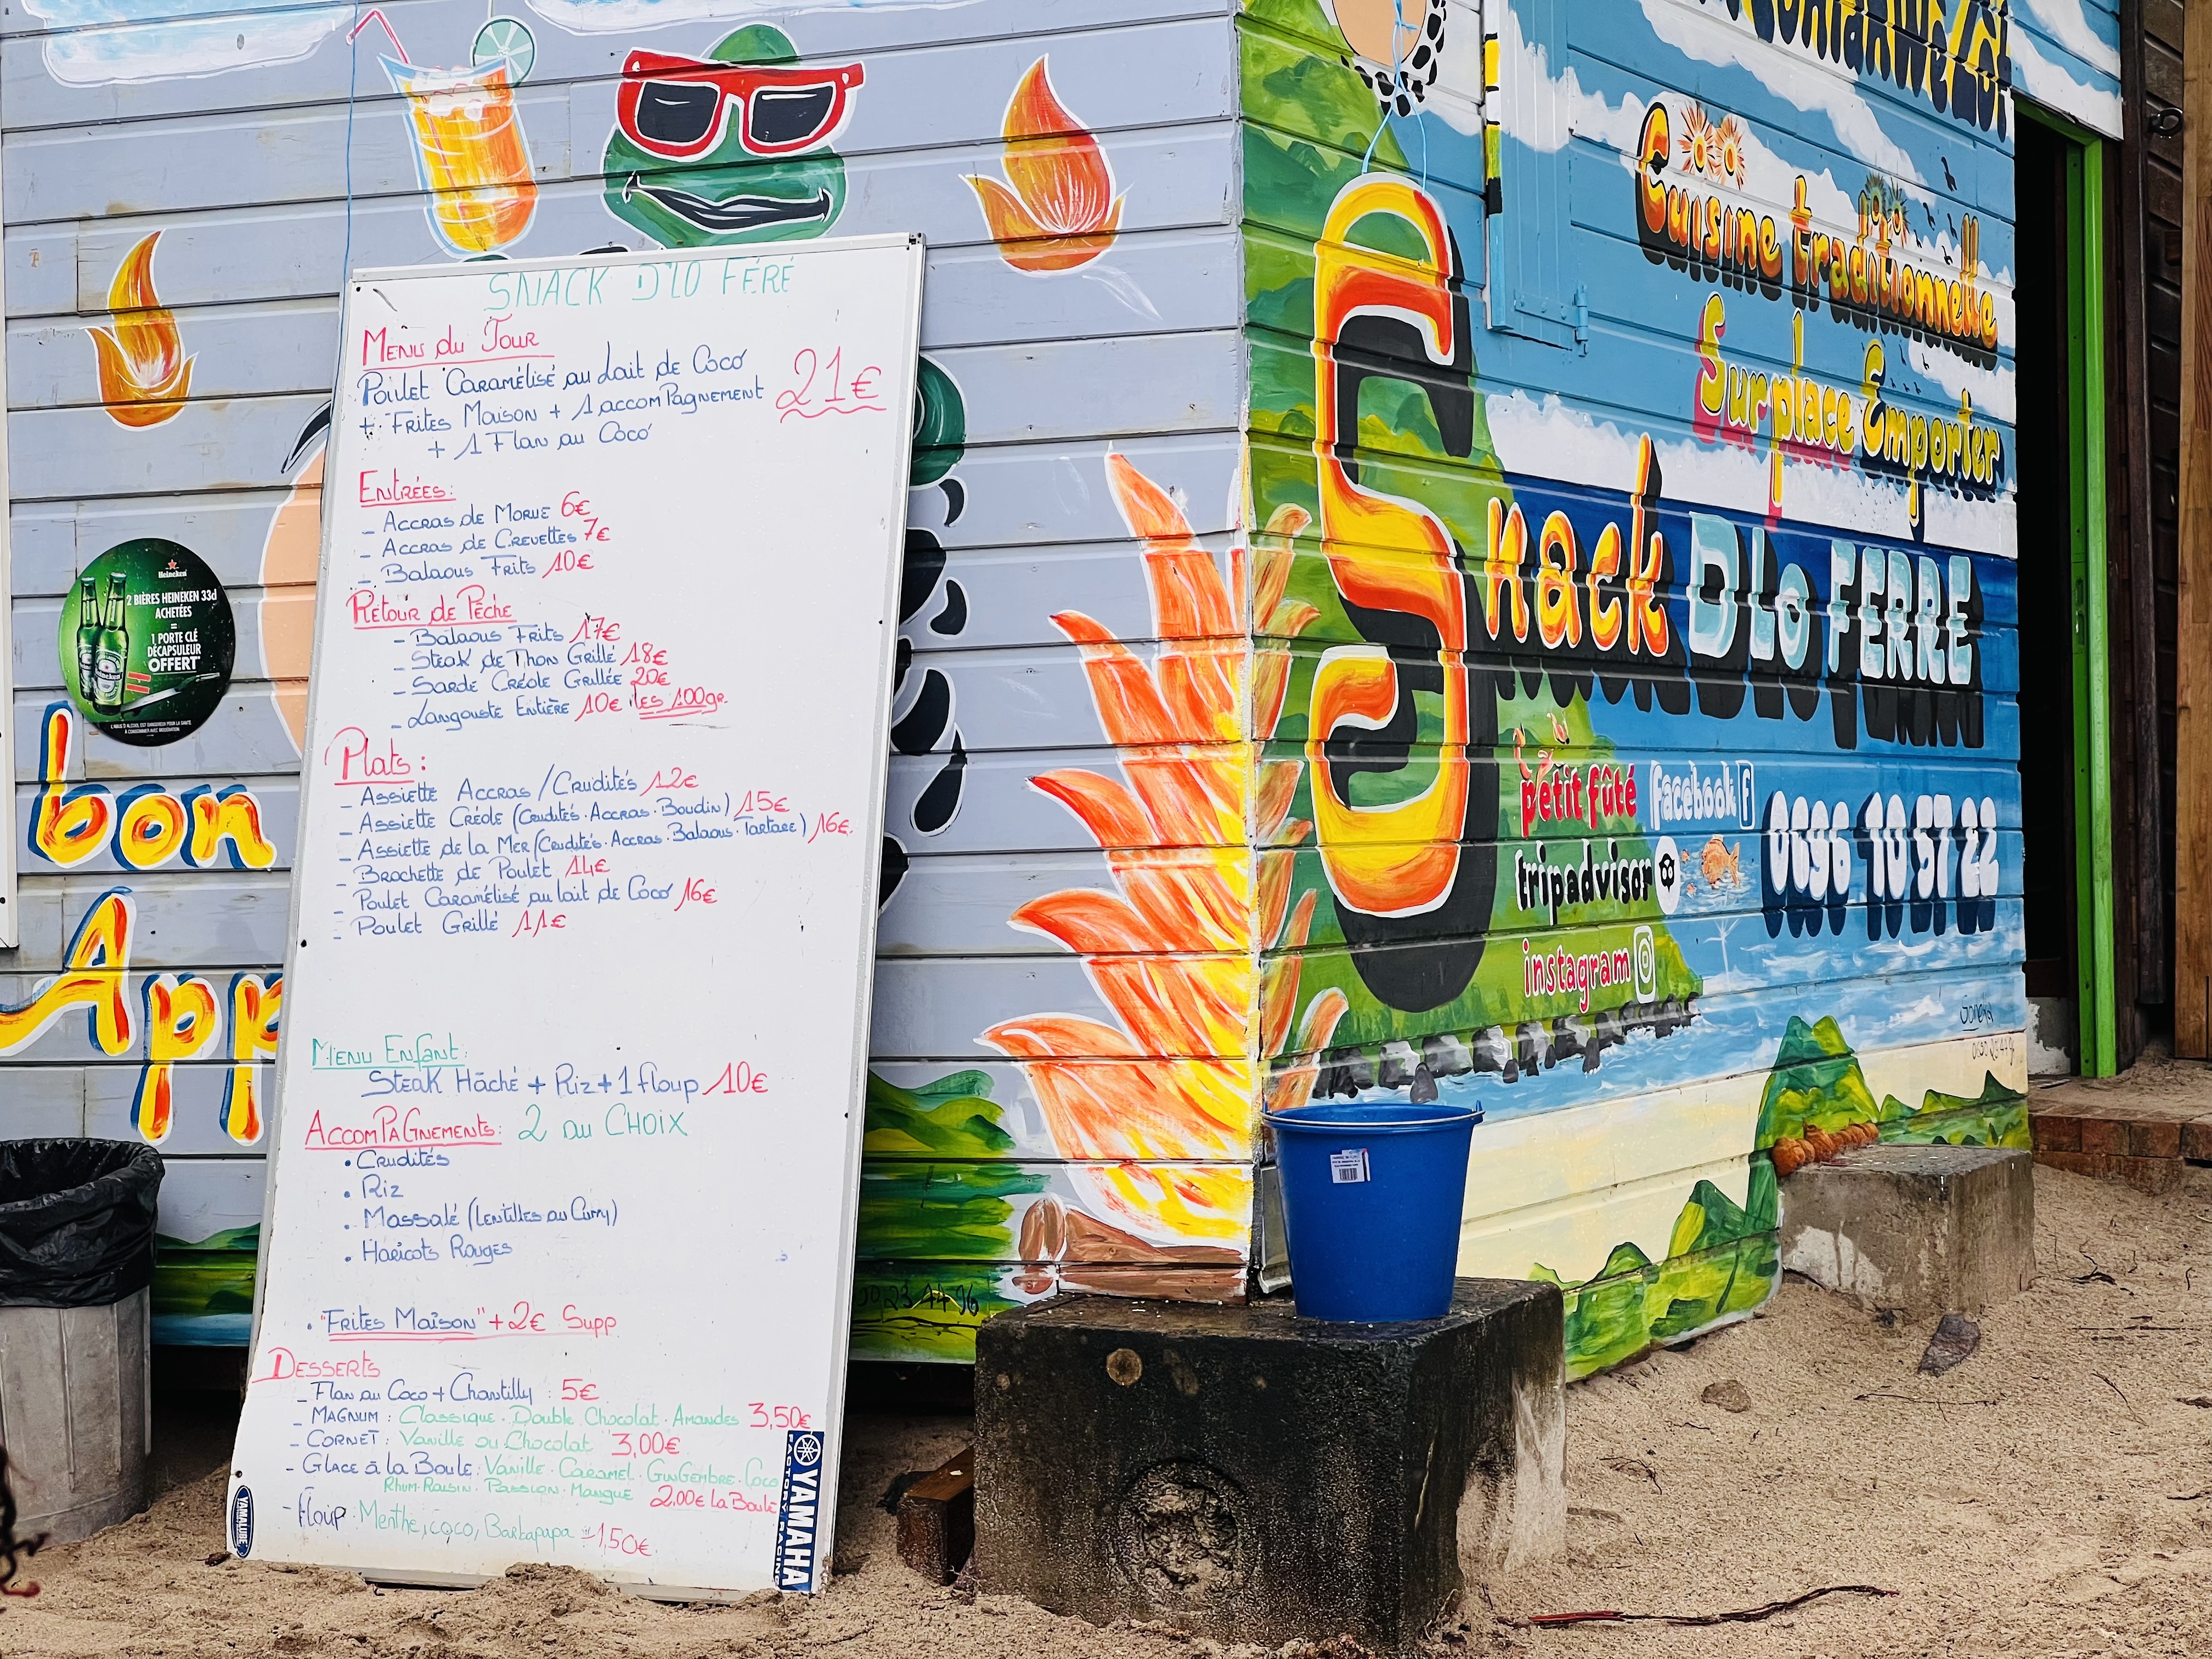 SNACK D'LO FÉRÉ
Menu du Jour
Poulet Caramélisé au Lait de Coco
21€
+ Frites Maison + 1 accomPagnement
+ 1 Flan au Coco
Entrées:
- Accras de Morue 6€
- Accras de Crevettes 7€
- Balaous Frits 10€
Retour de Pêche
- Balaous Frits 17€
- Steak de Thon Grillé 18€
- Sarde Créole Grillée 20€
- Langouste Entière 10€ les 100gr.
Plats:
- Assiette Accras / Crudités 12€
- Assiette Créole (Crudités. Accras. Boudin) 15€
- Assiette de la Mer (Crudités. Accras. Balaous. Tartare) 16€.
- Brochette de Poulet 14€
- Poulet Caramélisé au lait de Coco 16€
- Poulet Grillé 11€
Menu Enfant:
Steak Hâché + Riz + 1 floup 10€
AccomPaGnements: 2 au CHOIX
• Crudités
• Riz
• Massalé (Lentilles au Curry)
• Haricots Rouges
• "Frites Maison" + 2€ Supp
Desserts
- Flan au Coco + Chantilly : 5€
- Magnum : Classique. Double Chocolat. Amandes 3,50€
- Cornet : Vanille ou Chocolat 3,00€
- Glace à la Boule : Vanille. Caramel. GinGembre. Coco
Rhum-Raisin. Passion. Mangue 2,00€ La Boule
- Floup : Menthe, coco, Barbapapa = 1,50€.
YAMALUBE
YAMAHA
FACTORY RACING
Heineken
2 BIÈRES HEINEKEN 33cl
ACHETÉES
=
1 PORTE CLÉ
DÉCAPSULEUR
OFFERT*
L'ABUS D'ALCOOL EST DANGEREUX POUR LA SANTÉ
À CONSOMMER AVEC MODÉRATION
bon
App
Cuisine traditionnelle
Sur place Emporter
Snack DLo FERRE
petit fûté
facebook f
0696 10 57 22
tripadvisor
instagram